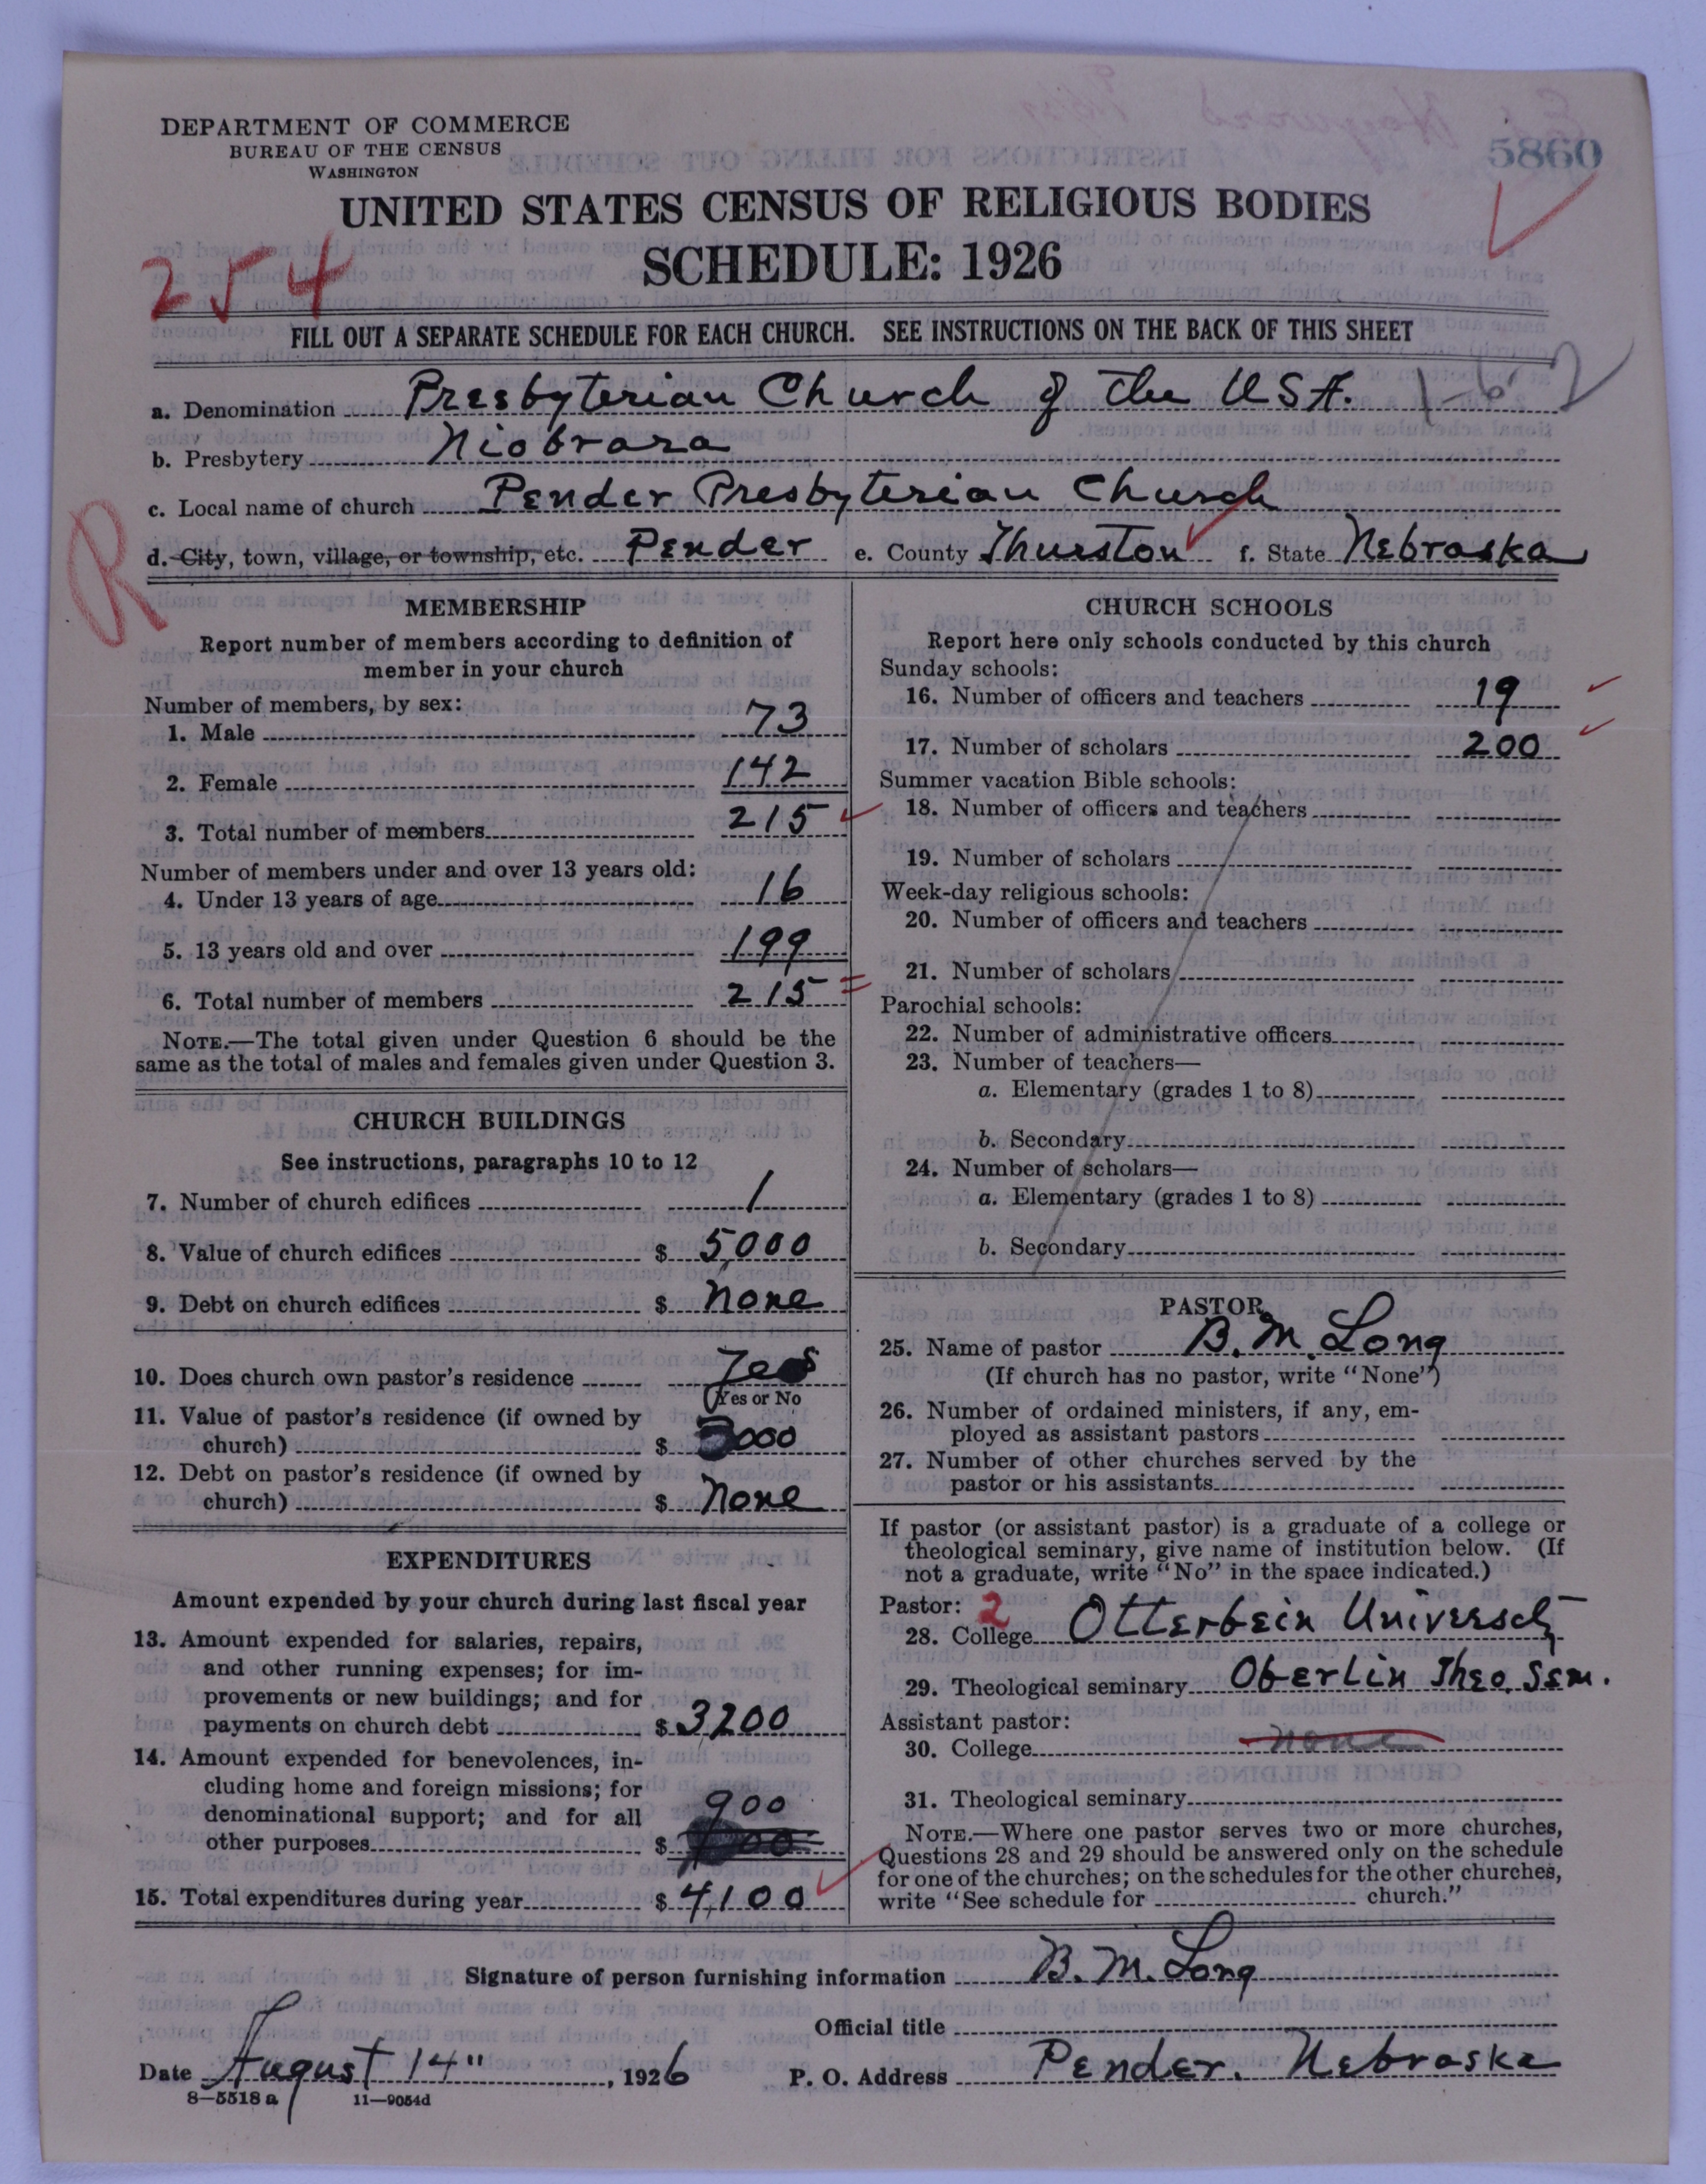 5860
DEPARTMENT OF COMMERCE
BUREAU OF THE CENSUS
WASHINGTON
UNITED STATES CENSUS OF RELIGIOUS BODIES
SCHEDULE: 1926
254
FILL OUT A SEPARATE SCHEDULE FOR EACH CHURCH. SEE INSTRUCTIONS ON THE BACK OF THIS SHEET
a. Denomination Presbyterian Church of the USA.
b. Presbytery Niobrara
c. Local name of church Pender Presbyterian Church
R
d. City, town, village, or township, etc. Pender e. County Thurston f. State Nebraska
MEMBERSHIP
Report number of members according to definition of
member in your church
Number of members, by sex:
1. Male 73
2. Female 142
3. Total number of members 215
Number of members under and over 13 years old:
4. Under 13 years of age 16
5. 13 years old and over 199
6. Total number of members 215
NOTE.—The total given under Question 6 should be the
same as the total of males and females given under Question 3.
CHURCH BUILDINGS
See instructions, paragraphs 10 to 12
7. Number of church edifices 1
8. Value of church edifices $ 5000
9. Debt on church edifices $ None
10. Does church own pastor's residence Yes
(Yes or No
11. Value of pastor's residence (if owned by
church) $ 3000
12. Debt on pastor's residence (if owned by
church) $ None
EXPENDITURES
Amount expended by your church during last fiscal year
13. Amount expended for salaries, repairs,
and other running expenses; for im-
provements or new buildings; and for
payments on church debt $ 3200
14. Amount expended for benevolences, in-
cluding home and foreign missions; for
denominational support; and for all
other purposes $ 900
15. Total expenditures during year $ 4,100
CHURCH SCHOOLS
Report here only schools conducted by this church
Sunday schools:
16. Number of officers and teachers 19
17. Number of scholars 200
Summer vacation Bible schools:
18. Number of officers and teachers
19. Number of scholars
Week-day religious schools:
20. Number of officers and teachers
21. Number of scholars
Parochial schools:
22. Number of administrative officers
23. Number of teachers—
a. Elementary (grades 1 to 8)
b. Secondary
24. Number of scholars—
a. Elementary (grades 1 to 8)
b. Secondary
PASTOR
25. Name of pastor B. M. Long
(If church has no pastor, write "None")
26. Number of ordained ministers, if any, em-
ployed as assistant pastors
27. Number of other churches served by the
pastor or his assistants
If pastor (or assistant pastor) is a graduate of a college or
theological seminary, give name of institution below. (If
not a graduate, write "No" in the space indicated.)
Pastor: 2
28. College Otterbein University
29. Theological seminary Oberlin Theo. Sem.
Assistant pastor:
30. College None
31. Theological seminary
NOTE.—Where one pastor serves two or more churches,
Questions 28 and 29 should be answered only on the schedule
for one of the churches; on the schedules for the other churches,
write "See schedule for church."
Signature of person furnishing information B. M. Long
Official title
Date August 14", 1926 P. O. Address Pender, Nebraska
8—5518 a 11—9054d